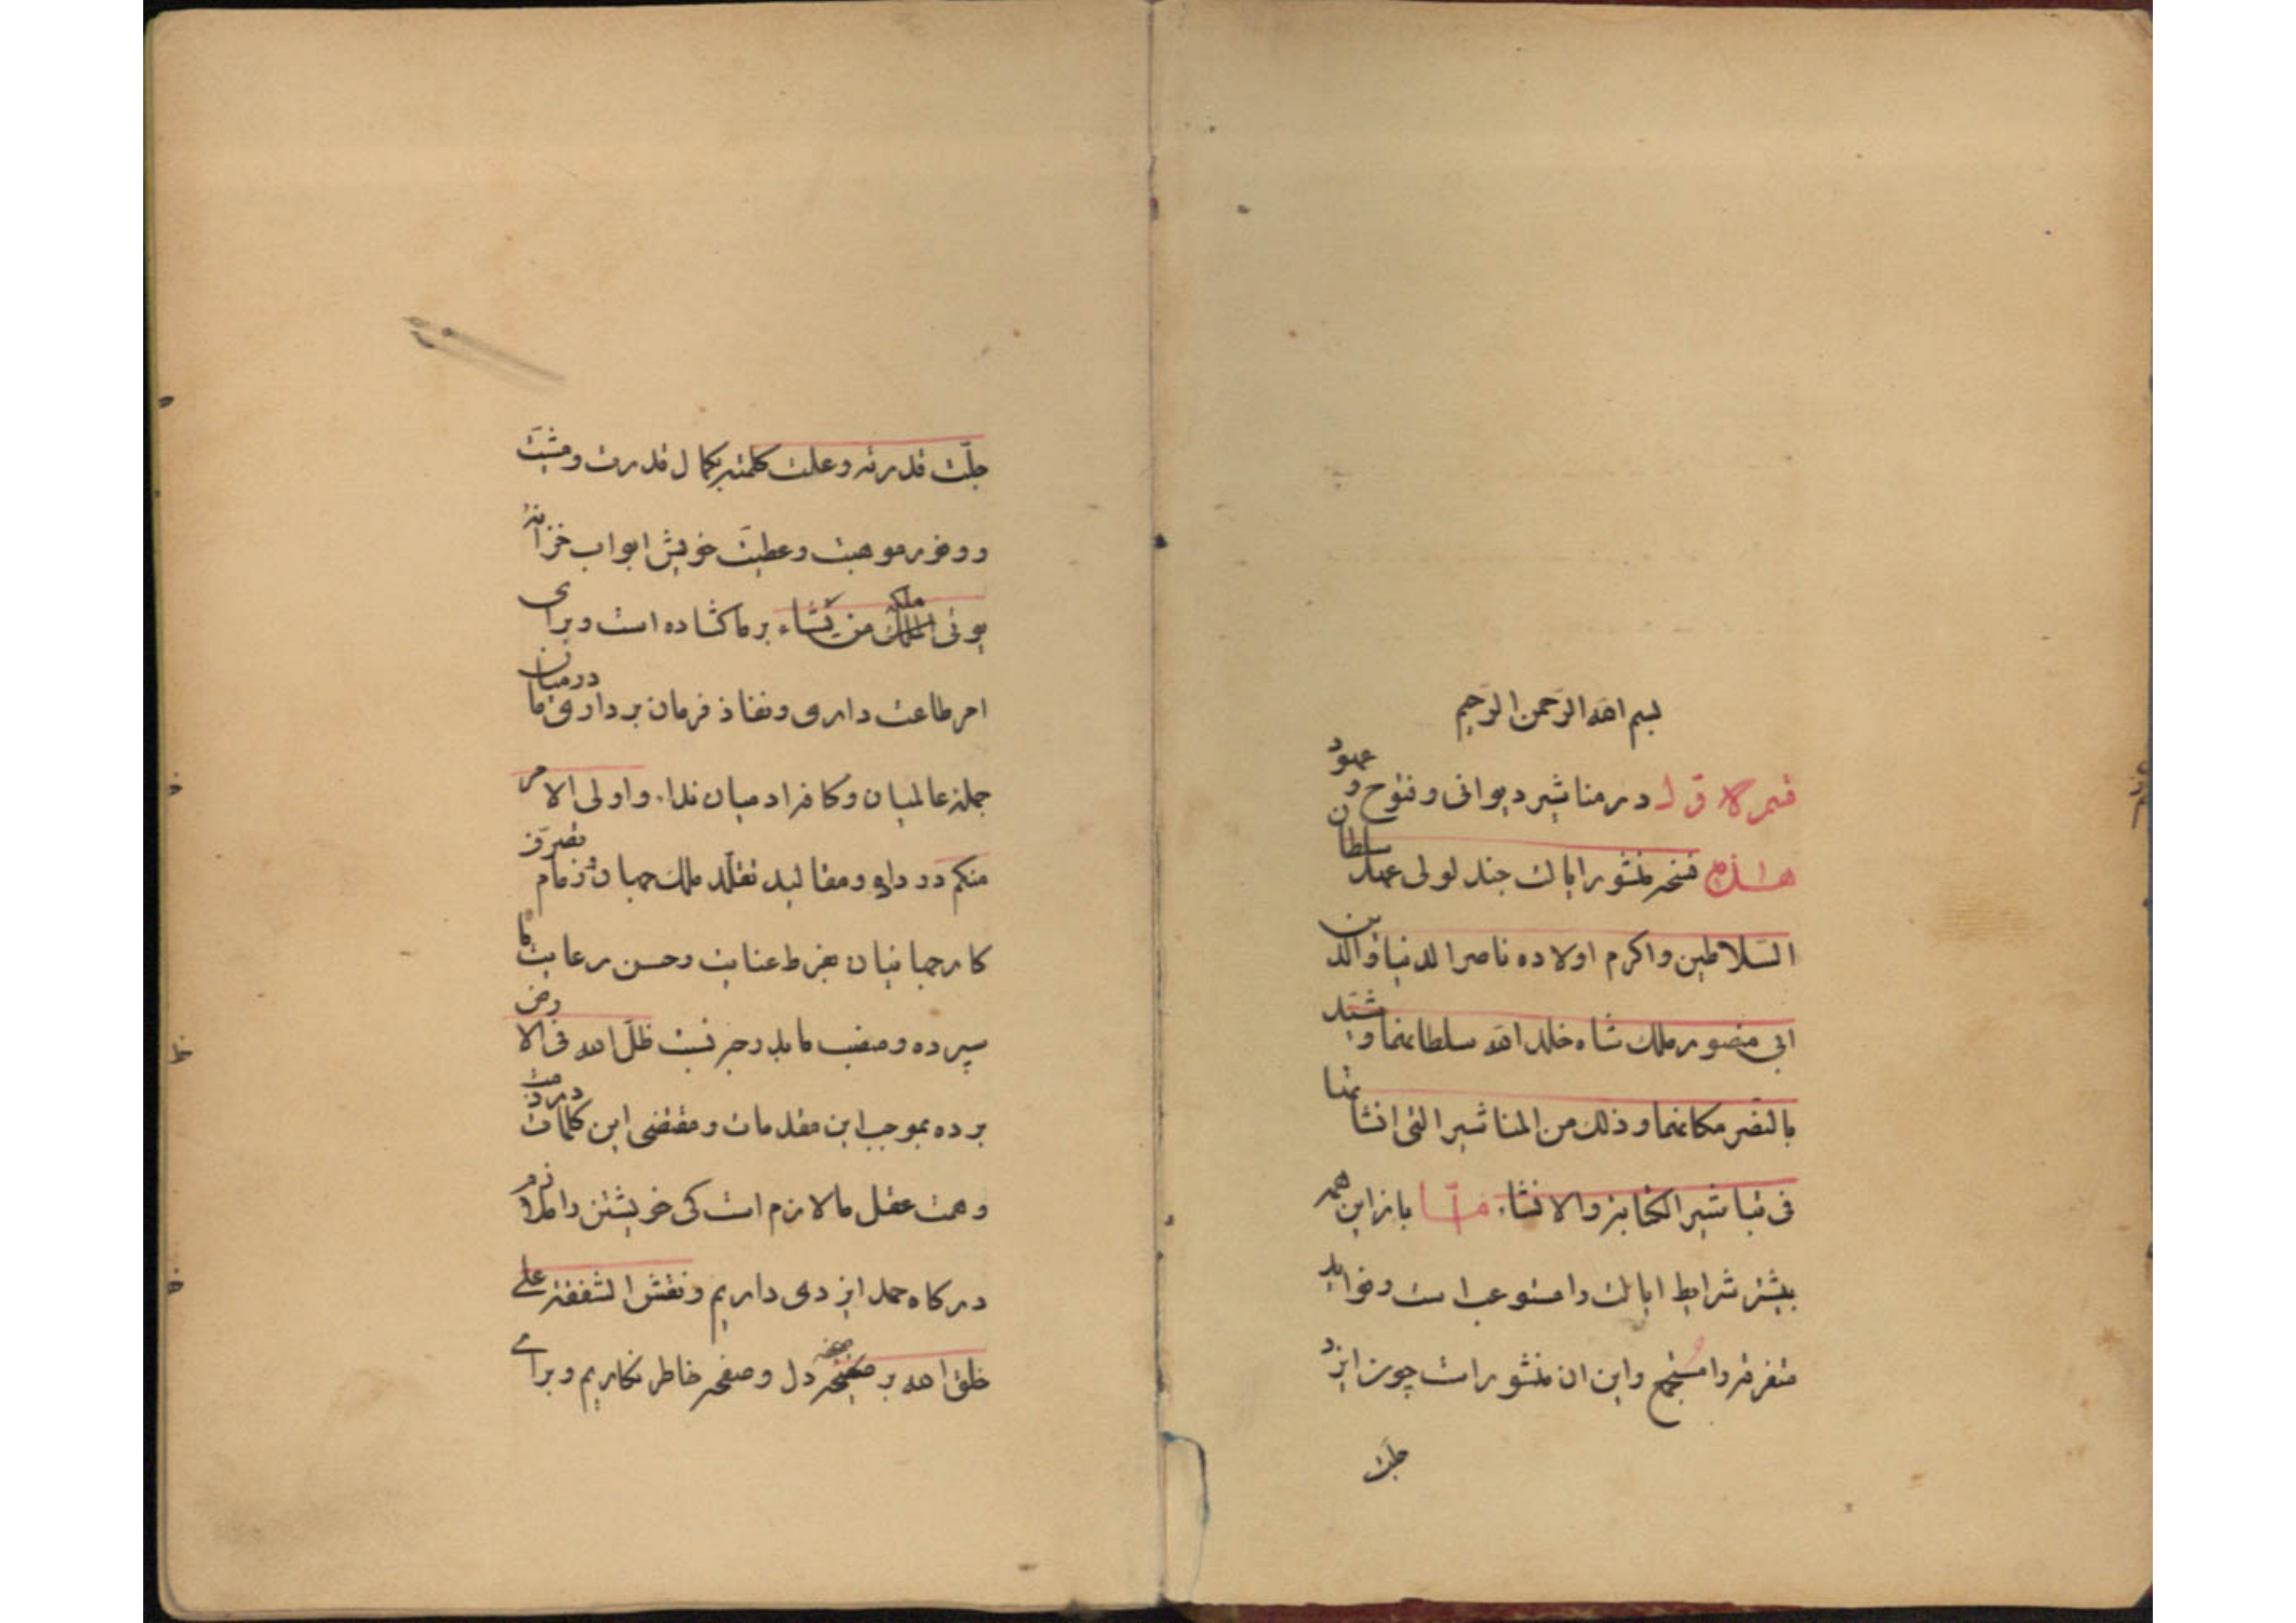 بسم الله الرحمن الرحیم
قسم الاول در مناشیر دیوانی و فتوح و عهود
هذه نسخه منشور ایالت جند لولی عهد سلطان
السلاطین و اکرم اولاده ناصر الدنیا والدین
ابی منصور ملک شاه خلد الله سلطانهما و شید
بالنصر مکانهما و ذلک من المناشیر التی انشاتها
فی تباشیر الکتابة والانشاء اما باز این همه
بیشتر شرایط ایالت را مستوعب است و فواید
متفرقه را مستجمع و این ان منشور است چون ایزد
جلت
جلّت قدرته و علت کلمته بکمال قدرت و مشیّت
و وفور موهبت و عطیّت خویش ابواب خزانه
یوتی ملکه من یشاء بر ما کشاده است و برای
امر طاعت داری و نفاذ فرمان برداری ما در میان
جمله عالمیان و کافه ادمیان ندا واولی الامر
منکم در داده و مقالید تقلّد ملک جهان و زمام تصرّف
کار جهانیان بفرط عنایت و حسن رعایت ما
سپرده و منصب ما بدرجه ظلّ الله فی الارض
برده بموجب این مقدمات و مقتضی این کلمات در
و همت عقل ما لازم است کی خویشتن را ملازم
درکاه حمد ایزدی داریم و نقش الشفقة علی
خلق الله بر صحیفه دل و صفحه خاطر نکاریم و برای